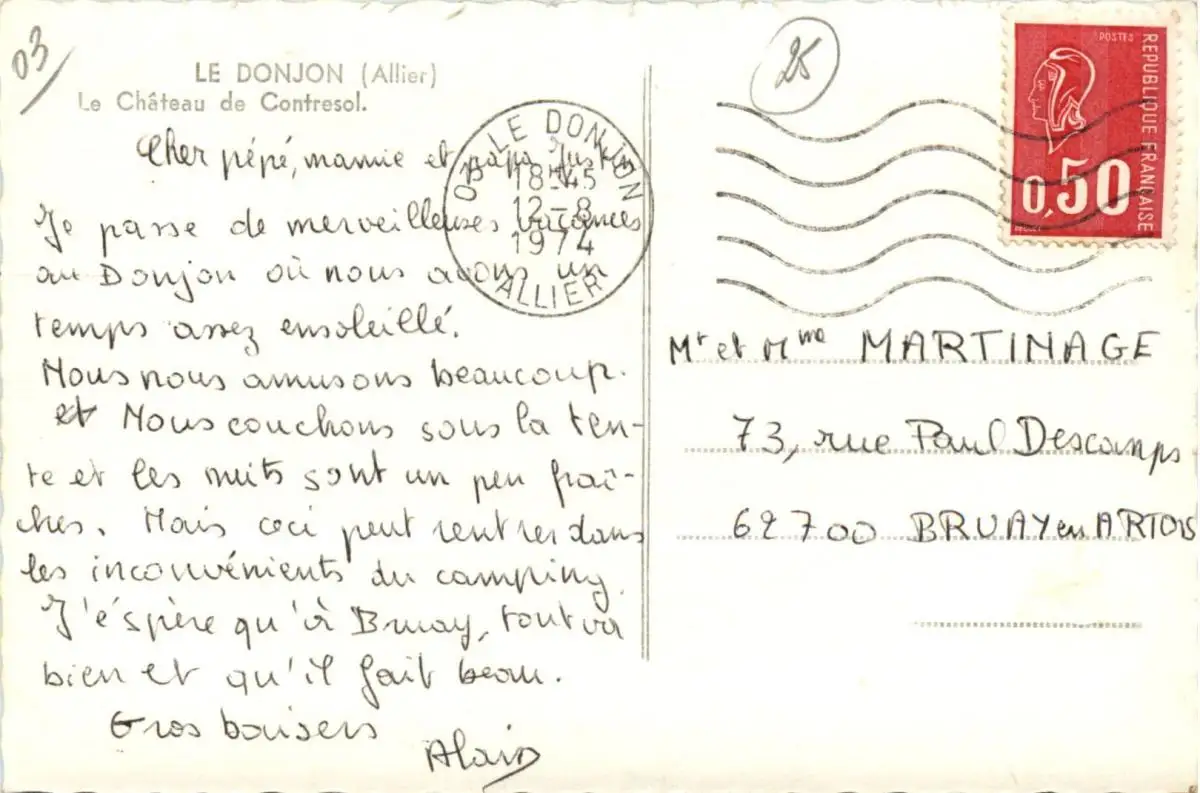 03
LE DONJON (Allier)
Le Château de Contresol.
Cher pépé, mamie et papa Just
Je passe de merveilleuses vacances
au Donjon où nous avons un
temps assez ensoleillé.
Nous nous amusons beaucoup.
et Nous couchons sous la ten-
te et les nuits sont un peu fraî-
ches. Mais ceci peut rentrer dans
les inconvénients du camping
J'éspère qu'à Bruay, tout va
bien et qu'il fait beau.
Gros baisers
Alain
LE DONJON
18-45
12-8
1974
ALLIER
25
POSTES
REPUBLIQUE FRANÇAISE
0,50
Mr et Mme MARTINAGE
73, rue Paul Descamps
62700 BRUAY en ARTOIS